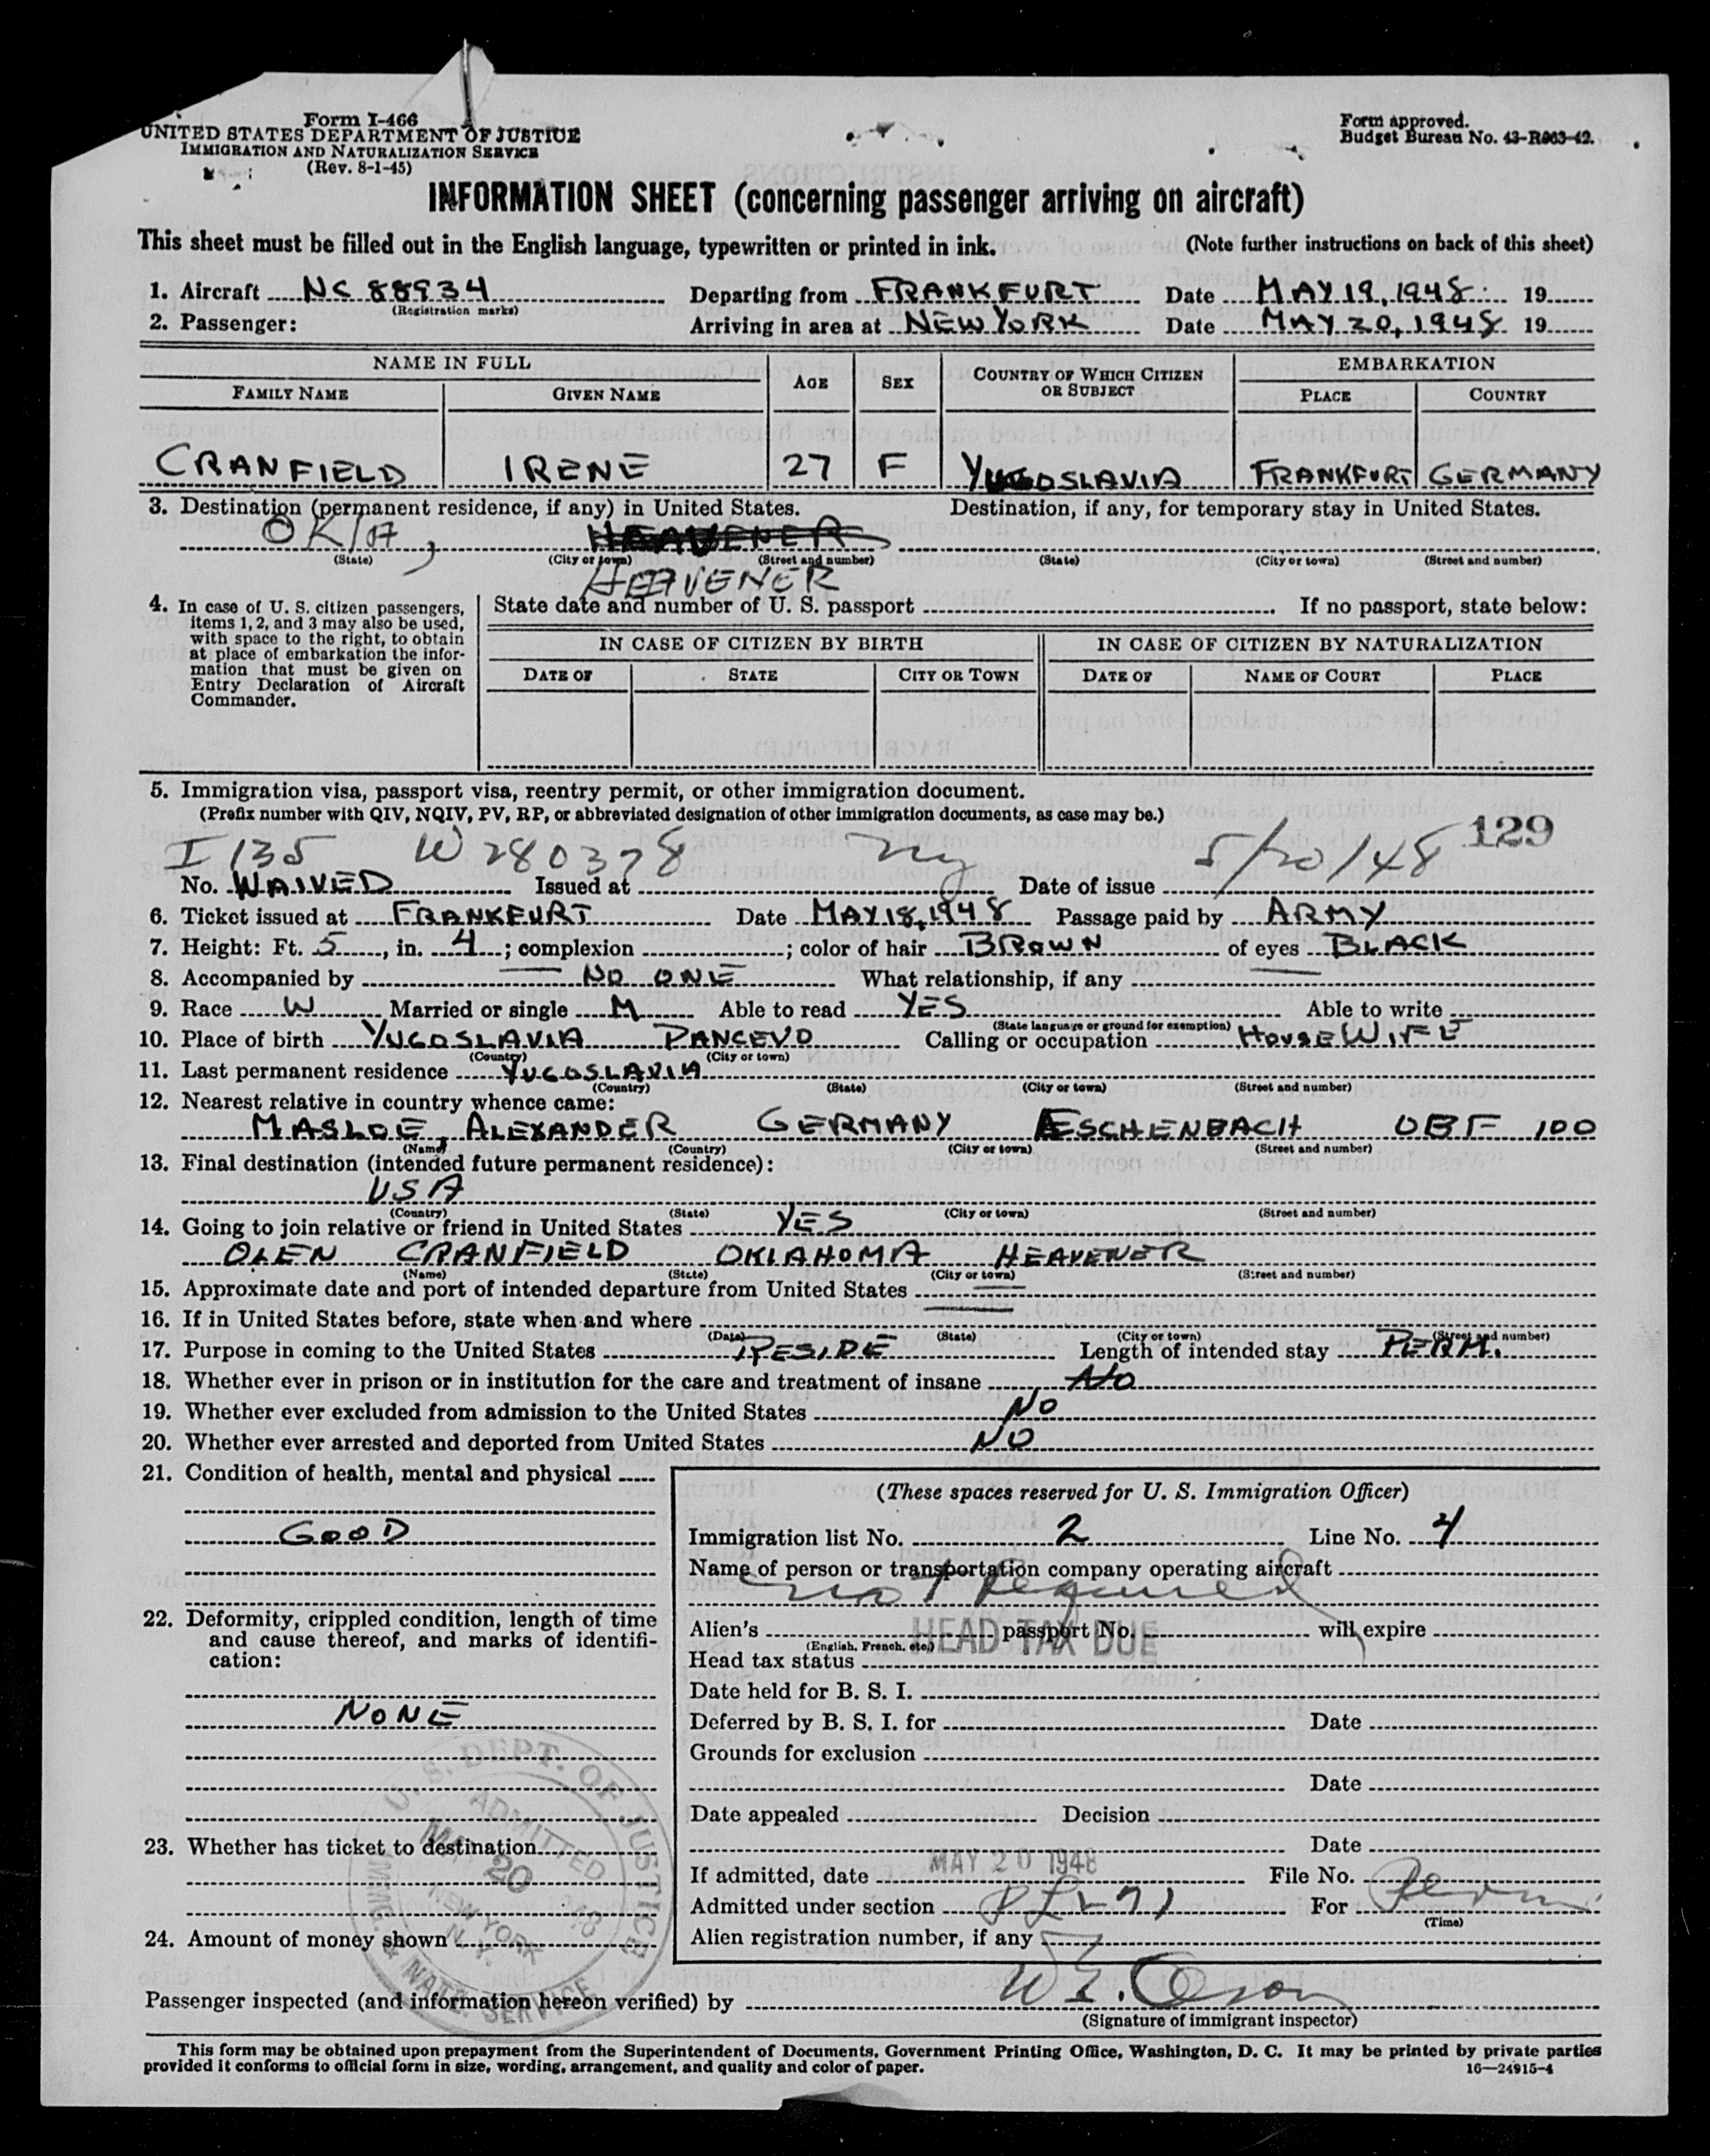 Form I-466
UNITED STATES DEPARTMENT OF JUSTICE
IMMIGRATION AND NATURALIZATION SERVICE
(Rev. 8-1-45)
Form approved.
Budget Bureau No. 43-R063-42.
INFORMATION SHEET (concerning passenger arriving on aircraft)
This sheet must be filled out in the English language, typewritten or printed in ink. (Note further instructions on back of this sheet)
1. Aircraft NC 88934 Departing from FRANKFURT Date MAY 19, 1948 19
(Registration marks)
2. Passenger: Arriving in area at NEW YORK Date MAY 20, 1948 19
NAME IN FULL AGE SEX COUNTRY OF WHICH CITIZEN OR SUBJECT EMBARKATION
FAMILY NAME GIVEN NAME PLACE COUNTRY
CRANFIELD IRENE 27 F YUGOSLAVIA FRANKFURT GERMANY
3. Destination (permanent residence, if any) in United States. Destination, if any, for temporary stay in United States.
OKLA, HEAVENER
(State) (City or town) (Street and number) (State) (City or town) (Street and number)
HEAVENER
4. In case of U. S. citizen passengers, items 1, 2, and 3 may also be used, with space to the right, to obtain at place of embarkation the information that must be given on Entry Declaration of Aircraft Commander.
State date and number of U. S. passport If no passport, state below:
IN CASE OF CITIZEN BY BIRTH IN CASE OF CITIZEN BY NATURALIZATION
DATE OF STATE CITY OR TOWN DATE OF NAME OF COURT PLACE
5. Immigration visa, passport visa, reentry permit, or other immigration document.
(Prefix number with QIV, NQIV, PV, RP, or abbreviated designation of other immigration documents, as case may be.)
129
I 135 W 280378 NY 5/20/48
No. WAIVED Issued at Date of issue
6. Ticket issued at FRANKFURT Date MAY 18, 1948 Passage paid by ARMY
7. Height: Ft. 5, in. 4; complexion ; color of hair BROWN of eyes BLACK
8. Accompanied by NO ONE What relationship, if any
9. Race W Married or single M Able to read YES Able to write
(State language or ground for exemption)
10. Place of birth YUGOSLAVIA PANCEVO Calling or occupation HOUSEWIFE
(Country) (City or town)
11. Last permanent residence YUGOSLAVIA
(Country) (State) (City or town) (Street and number)
12. Nearest relative in country whence came:
MASLOE, ALEXANDER GERMANY ESCHENBACH OBF 100
(Name) (Country) (City or town) (Street and number)
13. Final destination (intended future permanent residence):
USA
(Country) (State) (City or town) (Street and number)
14. Going to join relative or friend in United States YES
OLEN CRANFIELD OKLAHOMA HEAVENER
(Name) (State) (City or town) (Street and number)
15. Approximate date and port of intended departure from United States
16. If in United States before, state when and where
(Date) (State) (City or town) (Street and number)
17. Purpose in coming to the United States RESIDE Length of intended stay PERM.
18. Whether ever in prison or in institution for the care and treatment of insane NO
19. Whether ever excluded from admission to the United States NO
20. Whether ever arrested and deported from United States NO
21. Condition of health, mental and physical
GOOD
22. Deformity, crippled condition, length of time and cause thereof, and marks of identification:
NONE
23. Whether has ticket to destination
24. Amount of money shown
U. S. DEPT. OF JUSTICE
ADMITTED
MAY 20 1948
NEW YORK
N. Y.
IMMIG. & NATZ. SERVICE
(These spaces reserved for U. S. Immigration Officer)
Immigration list No. 2 Line No. 4
Name of person or transportation company operating aircraft
not required
Alien's passport No. will expire
(English, French, etc.)
HEAD TAX DUE
Head tax status
Date held for B. S. I.
Deferred by B. S. I. for Date
Grounds for exclusion
Date
Date appealed Decision
Date
If admitted, date MAY 20 1948 File No.
Admitted under section PL 271 For Perm
(Time)
Alien registration number, if any
Passenger inspected (and information hereon verified) by
(Signature of immigrant inspector)
This form may be obtained upon prepayment from the Superintendent of Documents, Government Printing Office, Washington, D. C. It may be printed by private parties
provided it conforms to official form in size, wording, arrangement, and quality and color of paper. 16—24915-4